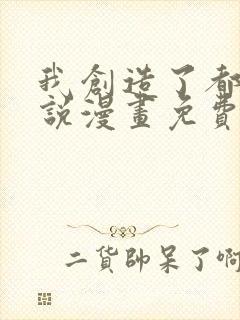 我創造了都
說漫畫免費
二貨帥呆了啊